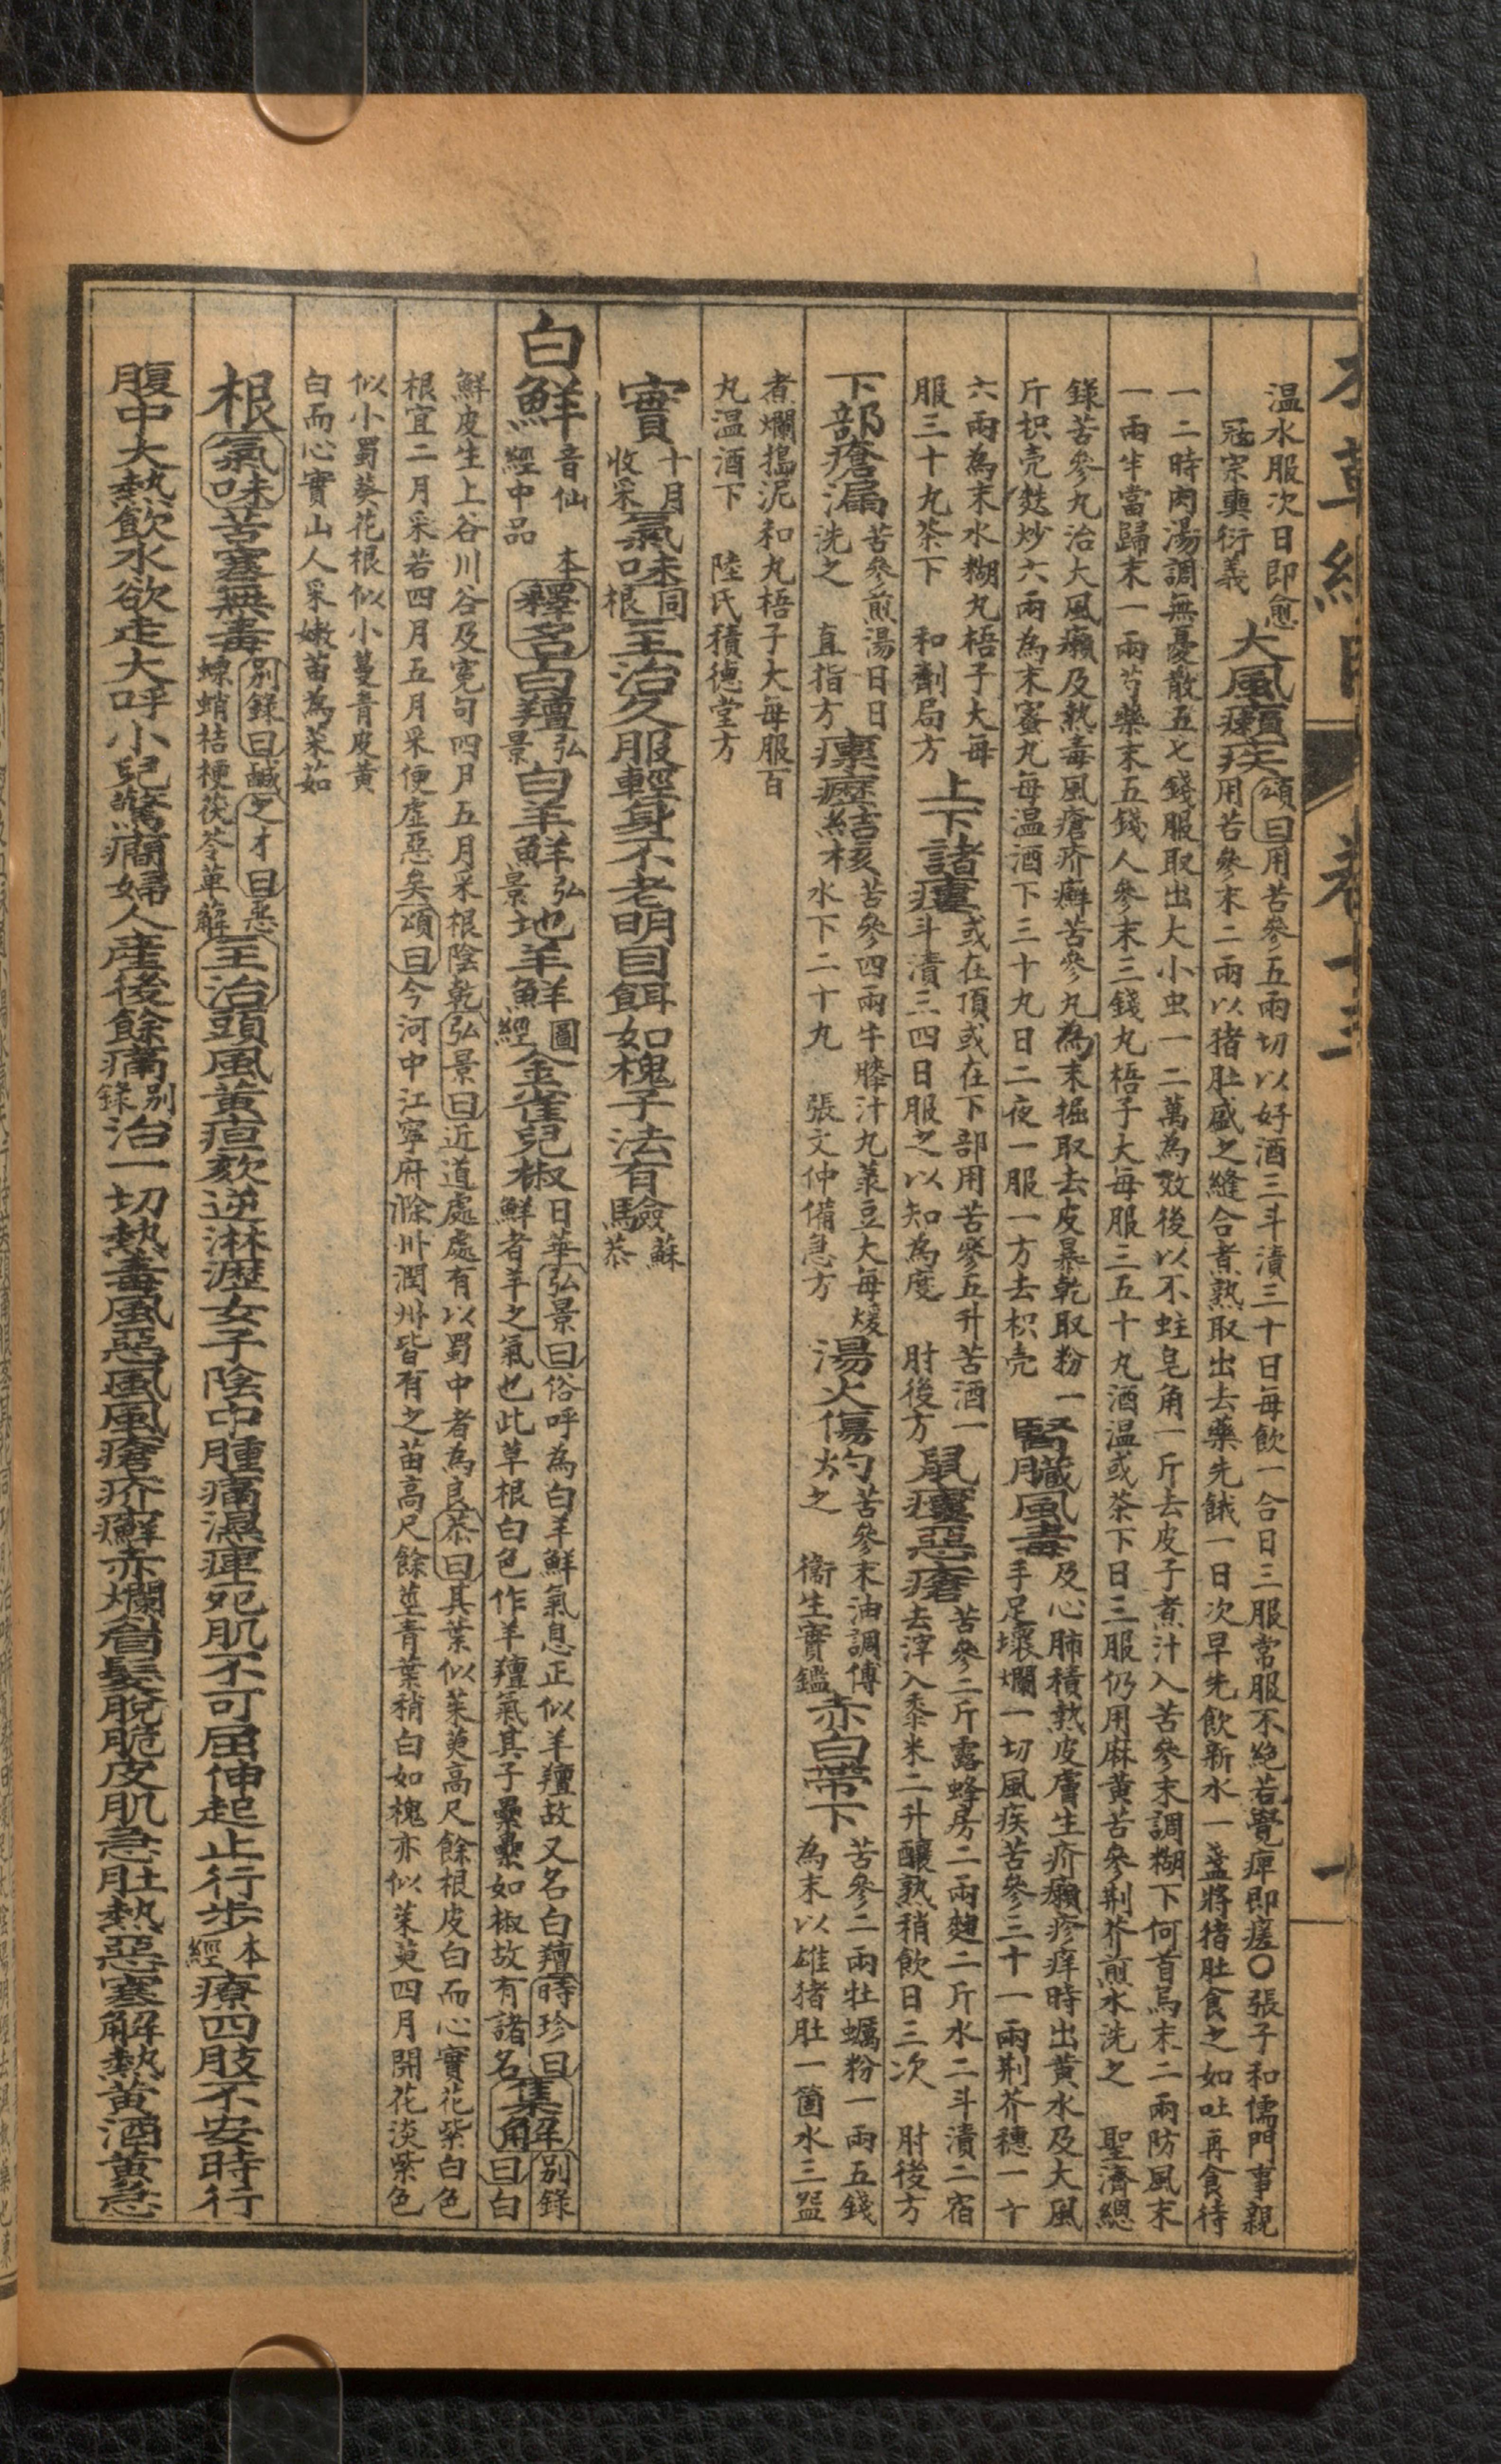 本草綱目 卷十三
溫水服次日即愈
寇宗奭衍義
大風癩疾
頌曰用苦參五兩切以好酒三斗漬三十日每飲一合日三服常服不絶若覺痺即瘥○張子和儒門事親
用苦參末二兩以猪肚盛之縫合煮熟取出去藥先餓一日次早先飲新水一盞將猪肚食之如吐再食待
一二時肉湯調無憂散五七錢服取出大小虫一二萬為效後以不蛀皂角一斤去皮子煮汁入苦參末調糊下何首烏末二兩防風末
一兩半當歸末一兩芍藥末五錢人參末三錢丸梧子大每服三五十丸酒溫或茶下日三服仍用麻黃苦參荆芥煎水洗之 聖濟總
錄苦參丸治大風癩及熱毒風瘡疥癬苦參丸為末掘取去皮暴乾取粉一
斤枳壳麩炒六兩為末蜜丸每温酒下三十丸日二夜一服一方去枳壳
腎臟風毒
及心肺積熱皮膚生疥癩疹痒時出黃水及大風
手足壞爛一切風疾苦參三十一兩荆芥穗一十
六兩為末水糊丸梧子大每
服三十丸茶下 和劑局方
上下諸瘻
或在頂或在下部用苦參五升苦酒一
斗漬三四日服之以知為度 肘後方
鼠瘻惡瘡
苦參二斤露蜂房二兩麯二斤水二斗漬二宿
去滓入黍米二升釀熟稍飲日三次 肘後方
下部瘡漏
苦參煎湯日日
洗之 直指方
瘰癧結核
苦參四兩牛膝汁丸菉豆大每煖
水下二十丸 張文仲備急方
湯火傷灼
苦參末油調傅
之 衞生寶鑑
赤白帶下
苦參二兩牡蠣粉一兩五錢
為末以雄猪肚一箇水三盌
煮爛搗泥和丸梧子大每服百
丸温酒下 陸氏積德堂方
實十月收采氣味同根主治久服輕身不老明目餌如槐子法有驗蘇恭
白鮮音仙 本經中品釋名白羶弘景白羊鮮弘景地羊鮮圖經金雀兒椒日華
弘景曰俗呼為白羊鮮氣息正似羊羶故又名白羶時珍曰
鮮者羊之氣也此草根白色作羊羶氣其子纍纍如椒故有諸名
集解別錄曰白
鮮皮生上谷川谷及寃句四月五月采根陰乾弘景曰近道處處有以蜀中者為良恭曰其葉似茱萸高尺餘根皮白而心實花紫白色
根宜二月采若四月五月采便虛惡矣頌曰今河中江寧府滁州潤州皆有之苗高尺餘莖青葉稍白如槐亦似茱萸四月開花淡紫色
似小蜀葵花根似小蔓青皮黃
白而心實山人采嫩苗為菜茹
根氣味苦寒無毒別錄曰鹹之才曰惡螵蛸桔梗茯苓萆薢主治頭風黃疸欬逆淋瀝女子陰中腫痛濕痺死肌不可屈伸起止行步本經療四肢不安時行
腹中大熱飲水欲走大呼小兒驚癎婦人產後餘痛別錄治一切熱毒風惡風風瘡疥癬赤爛眉髮脫脆皮肌急壯熱惡寒解熱黃酒黃急